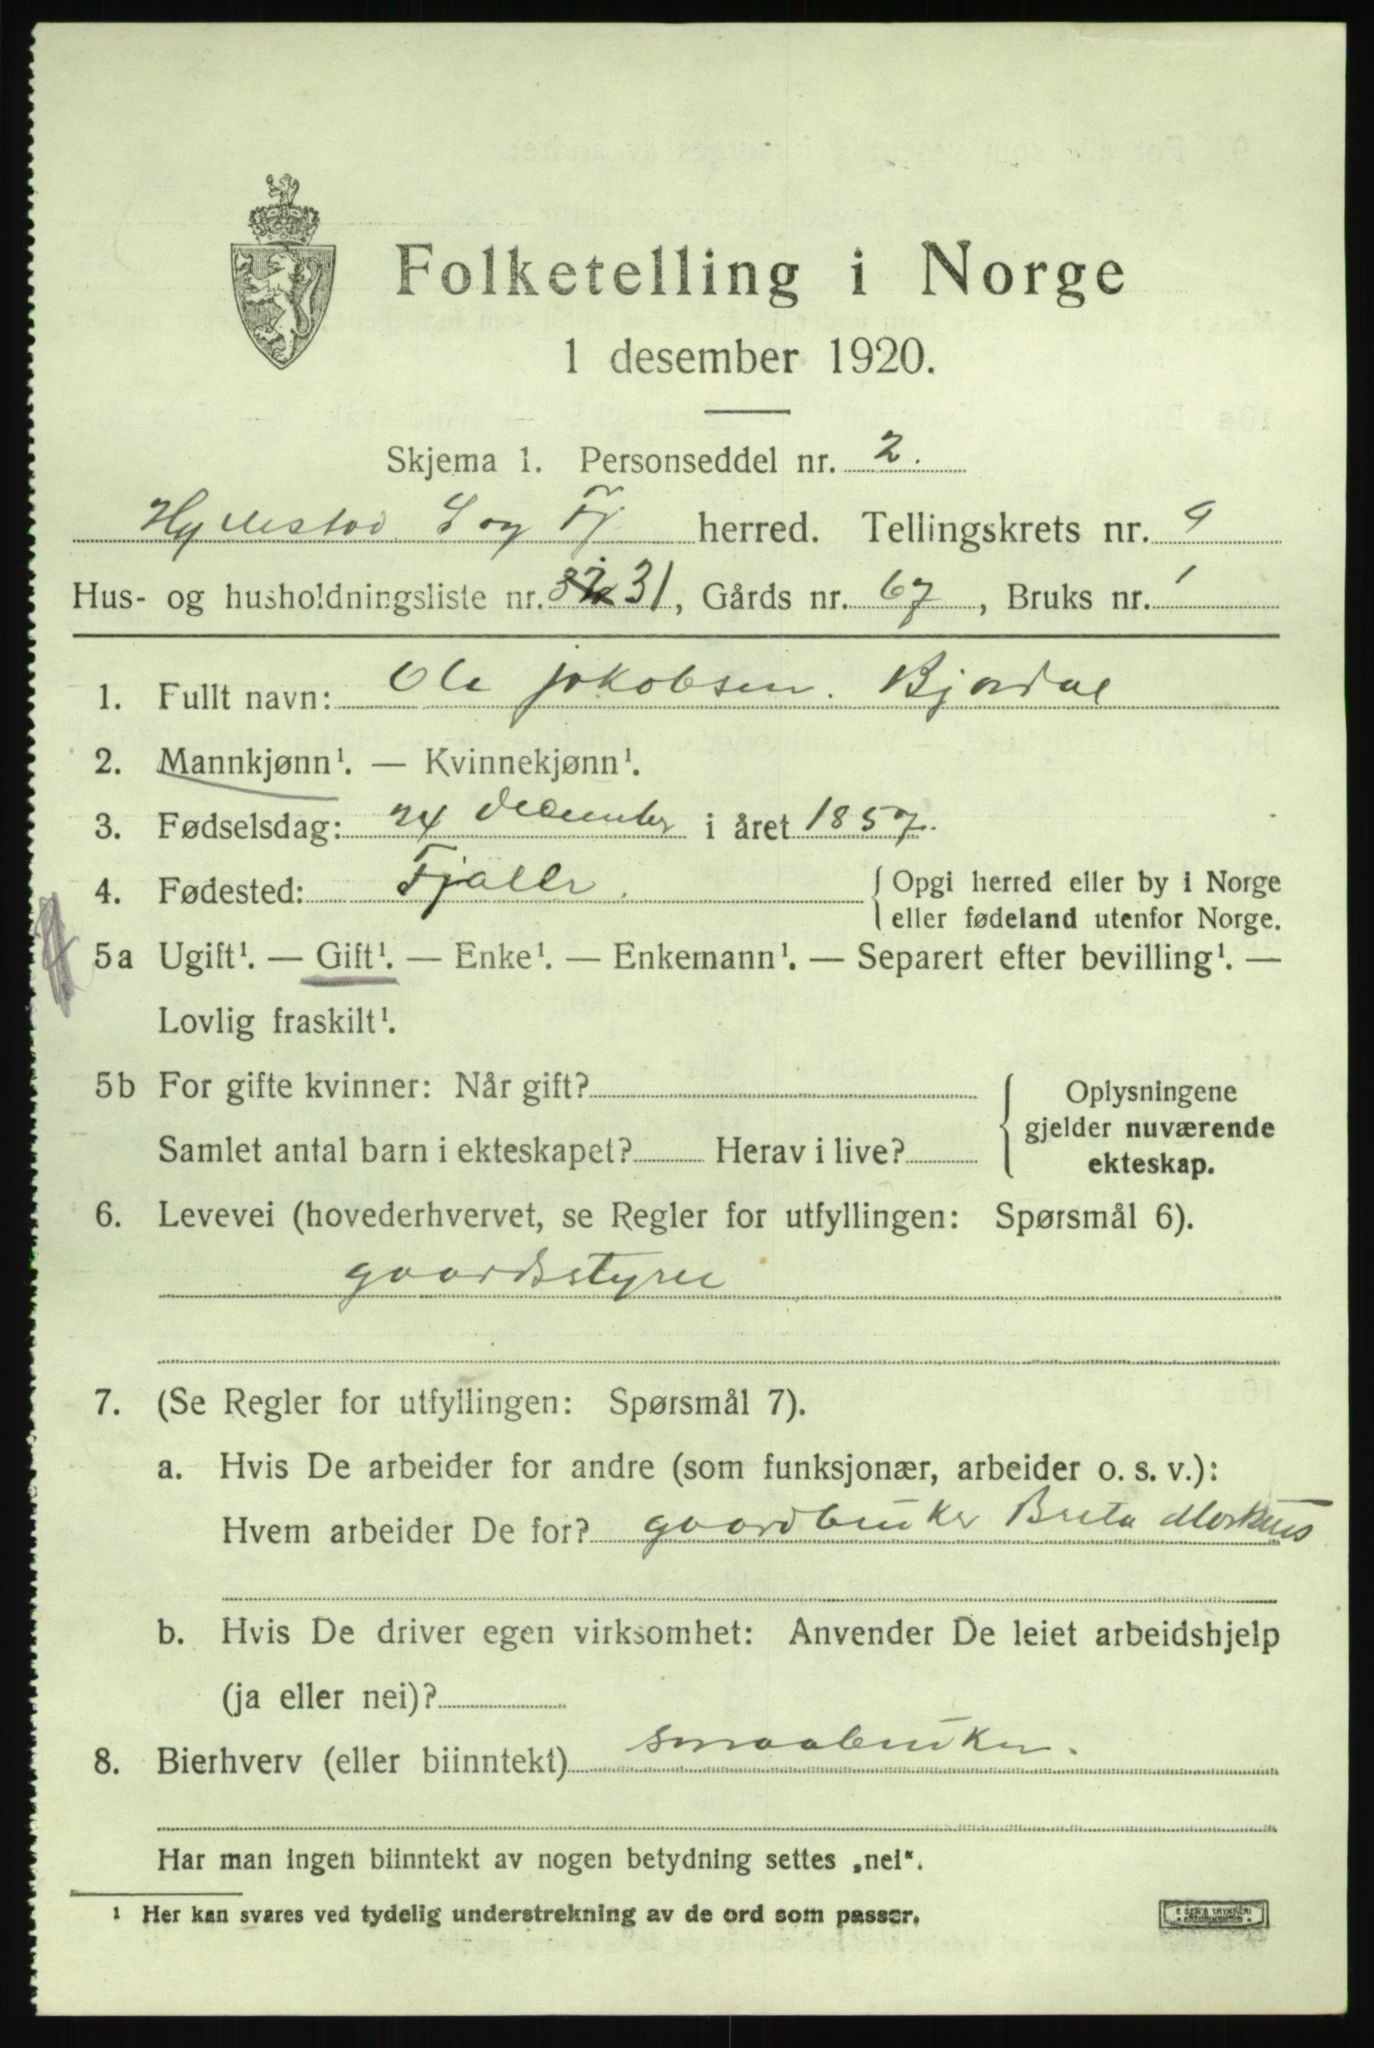 Folketelling i Norge
1 desember 1920.
Skjema 1. Personseddel nr. 2.
Hyllestad Sogn Fj herred. Tellingskrets nr. 9
Hus- og husholdningsliste nr. 31, Gårds nr. 67, Bruks nr. 1
1. Fullt navn: Ole Jakobsen. Bjordal
2. Mannkjønn¹. — Kvinnekjønn¹.
3. Fødselsdag: 24 december i året 1857.
4. Fødested: Fjaler. Opgi herred eller by i Norge
eller fødeland utenfor Norge.
5a Ugift¹. — Gift¹. — Enke¹. — Enkemann¹. — Separert efter bevilling¹. —
Lovlig fraskilt¹.
5b For gifte kvinner: Når gift?
Samlet antal barn i ekteskapet? Herav i live?
Oplysningene
gjelder nuværende
ekteskap.
6. Levevei (hovederhvervet, se Regler for utfyllingen: Spørsmål 6).
gaardsstyre
7. (Se Regler for utfyllingen: Spørsmål 7).
a. Hvis De arbeider for andre (som funksjonær, arbeider o. s. v.):
Hvem arbeider De for? gaardbruker Brita
b. Hvis De driver egen virksomhet: Anvender De leiet arbeidshjelp
(ja eller nei)?
8. Bierhverv (eller biinntekt) smaabruker.
Har man ingen biinntekt av nogen betydning settes „nei“.
¹ Her kan svares ved tydelig understrekning av de ord som passer.